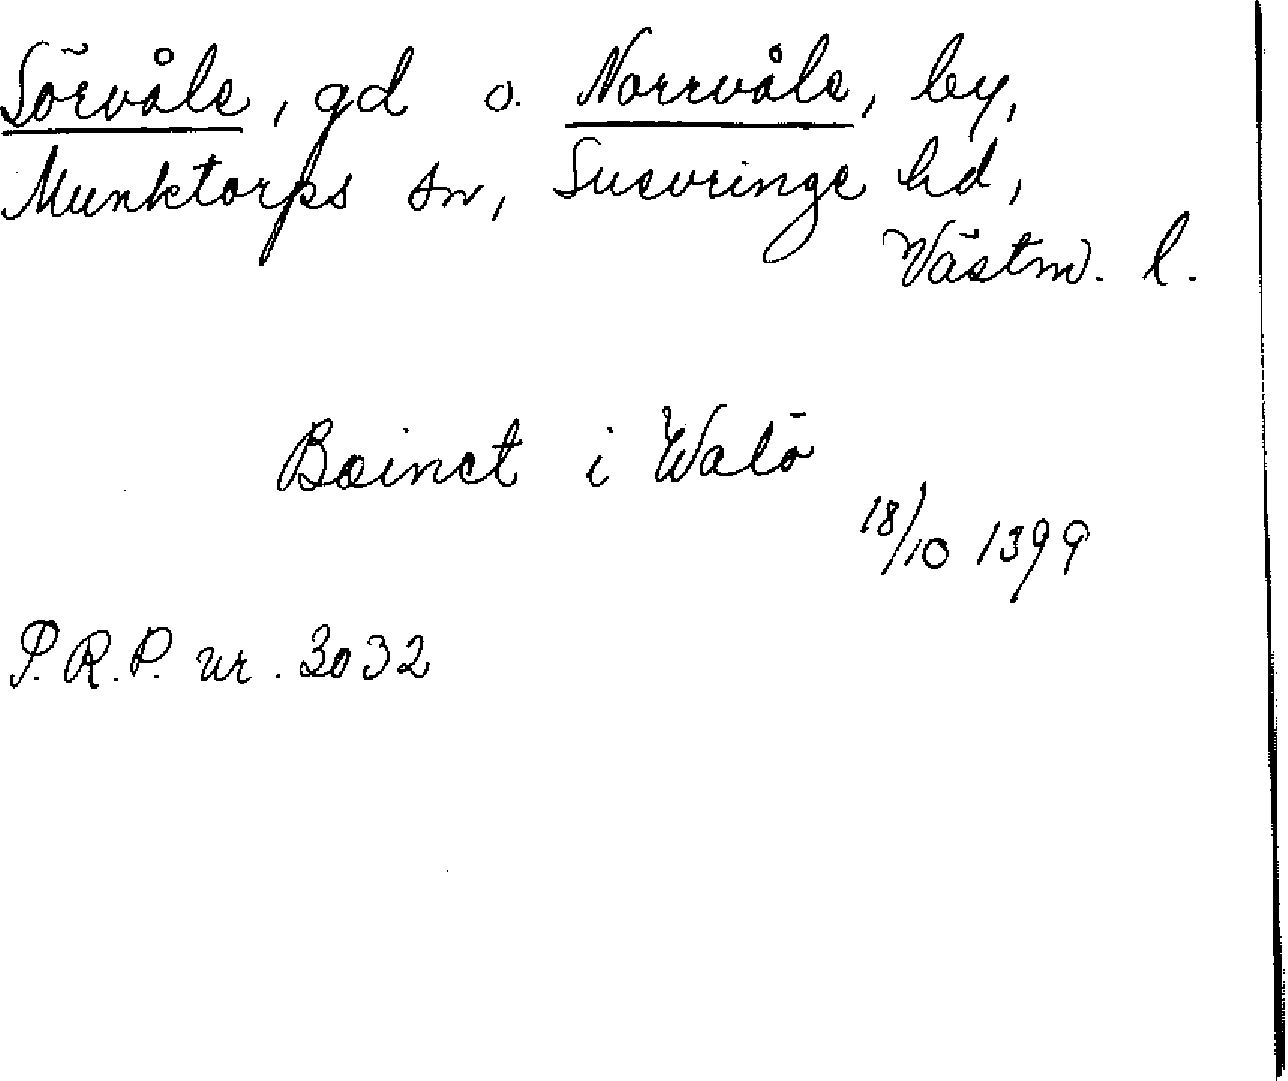 Sörvåle, gd o. Norrvåle, by,
Munktorps sn, Snevringe hd,
Västm. l.
Boinct i Walö
18/10 1399
P.R.P. nr. 3032